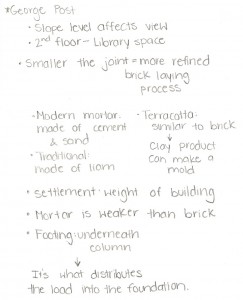 *George Post
• Slope level affects view
• 2nd floor - Library space
• Smaller the joint = more refined
brick laying
process
• Modern mortar:
made of cement
& sand
• Traditional:
made of liam
• Terracotta:
similar to brick
Clay product
Can make a
mold
• Settlement: weight of building
• Mortar is weaker than brick
• Footing: underneath
column
It's what distributes
the load into the foundation.